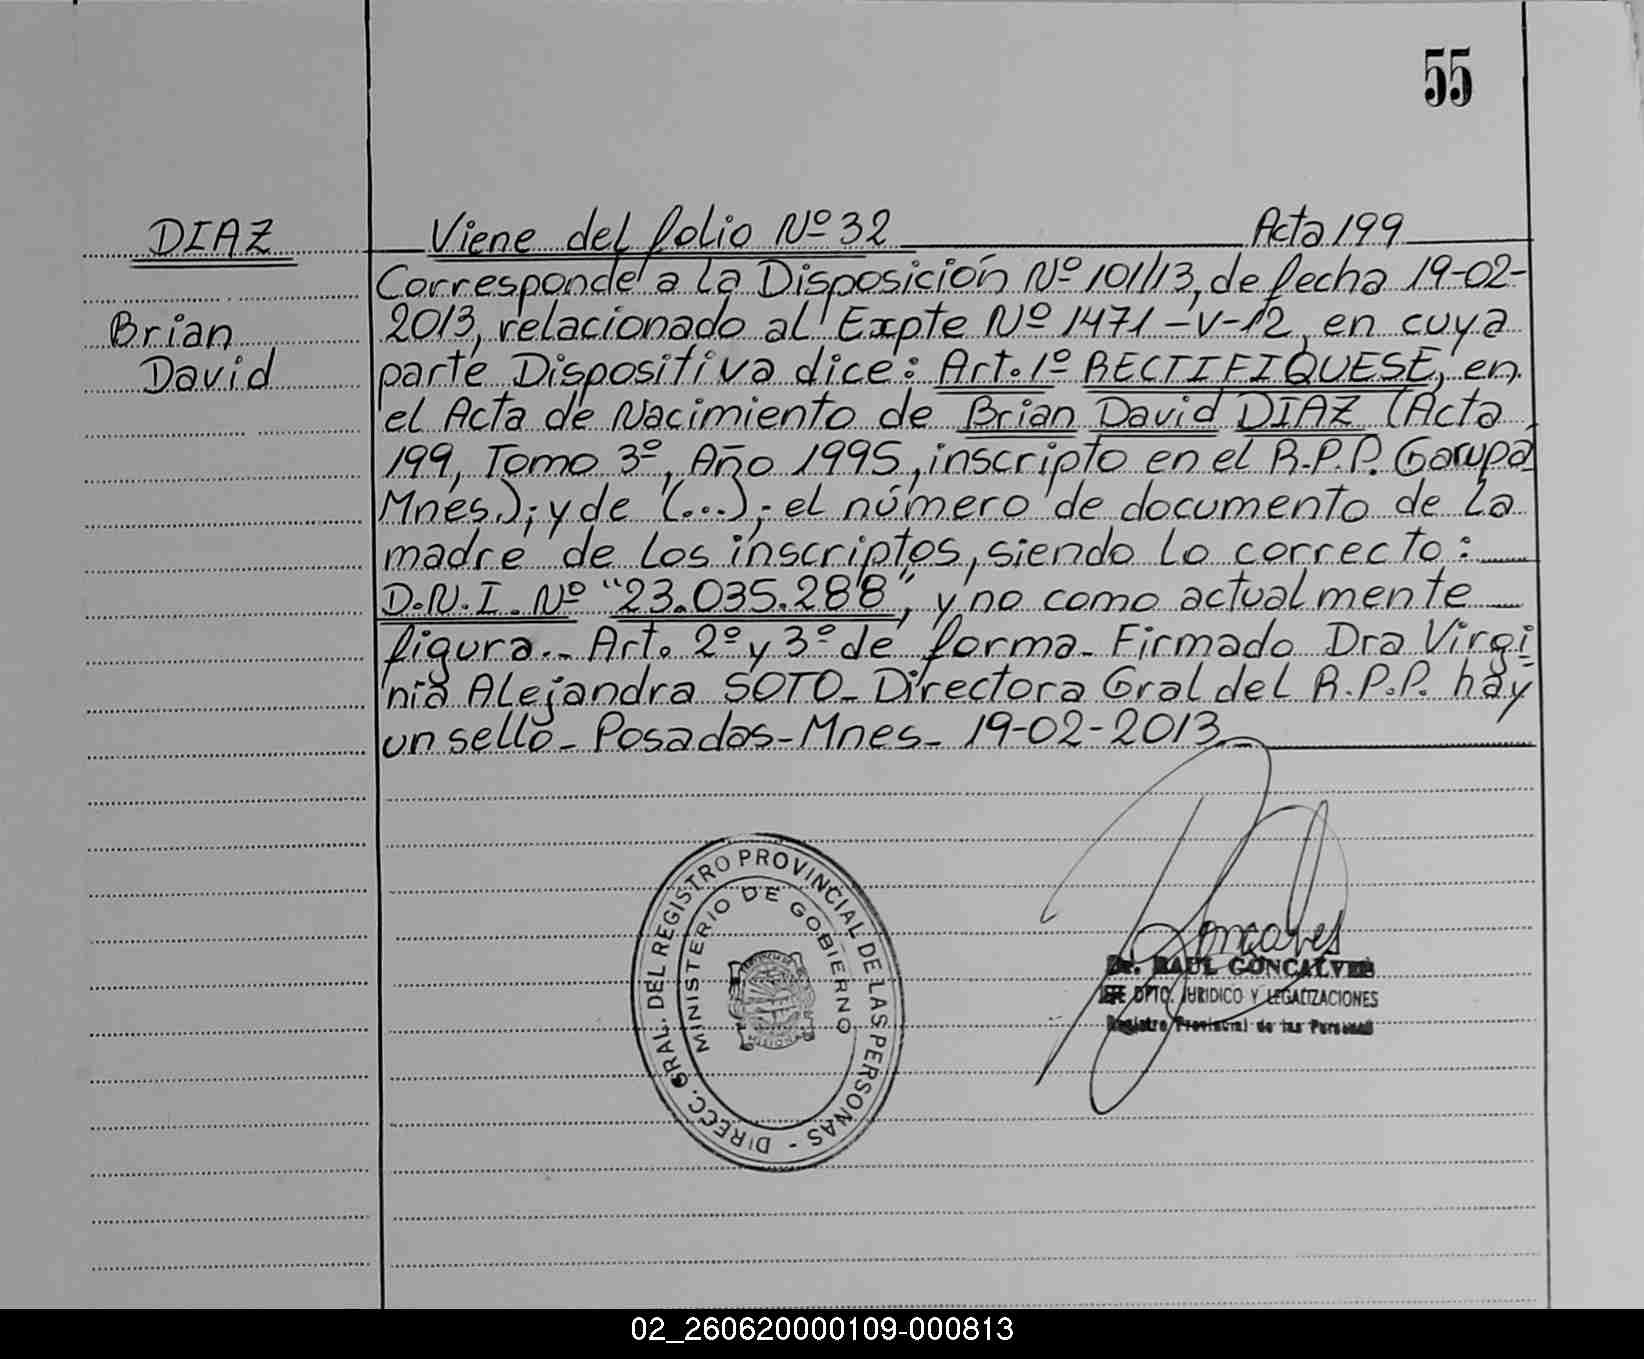 55
DIAZ
Brian
David
Viene del folio Nº 32 Acta 199
Corresponde a la Disposición Nº 101/13, de fecha 19-02-
2013, relacionado al Expte Nº 1471-V-12, en cuya
parte Dispositiva dice: Art. 1º RECTIFIQUESE, en
el Acta de Nacimiento de Brian David DIAZ (Acta
199, Tomo 3º, Año 1995, inscripto en el R.P.P. Garupa
Mnes.); y de (...); el número de documento de la
madre de los inscriptos, siendo lo correcto:
D.N.I. Nº "23.035.288", y no como actualmente
figura.- Art. 2º y 3º de forma- Firmado Dra Virgi
nia Alejandra SOTO- Directora Gral del R.P.P. hay
un sello- Posadas-Mnes- 19-02-2013
DIRECC. GRAL. DEL REGISTRO PROVINCIAL DE LAS PERSONAS -
MINISTERIO DE GOBIERNO
Goncalves
Dr. RAUL GONCALVES
JEFE DPTO. JURIDICO Y LEGALIZACIONES
Registro Provincial de las Personas
02_260620000109-000813